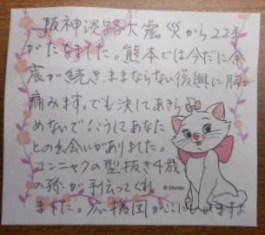 阪神淡路大震災から22年
がたちました。熊本では今だに余
震が続きままならない復興に胸が
痛みます。でも決してあきら
めないで!こうしてあなた
との出会いがありました。
コンニャクの型抜き4歳
の孫が手伝ってくれ
ました。応援団がここにもいますよ
©Disney